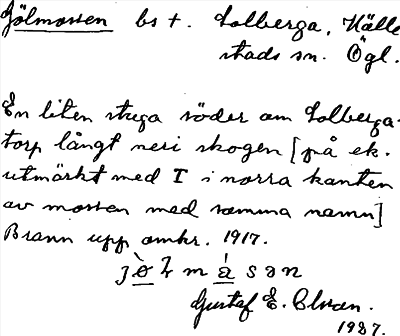 Gölmossen bst. Solberga, Hälle
stads sn. Ögl.
En liten stuga söder om Solberga
torp långt neri skogen [på ek.
utmärkt med T i norra kanten
av mossen med samma namn]
Brann upp omkr. 1917.
Gustaf E.
1987.